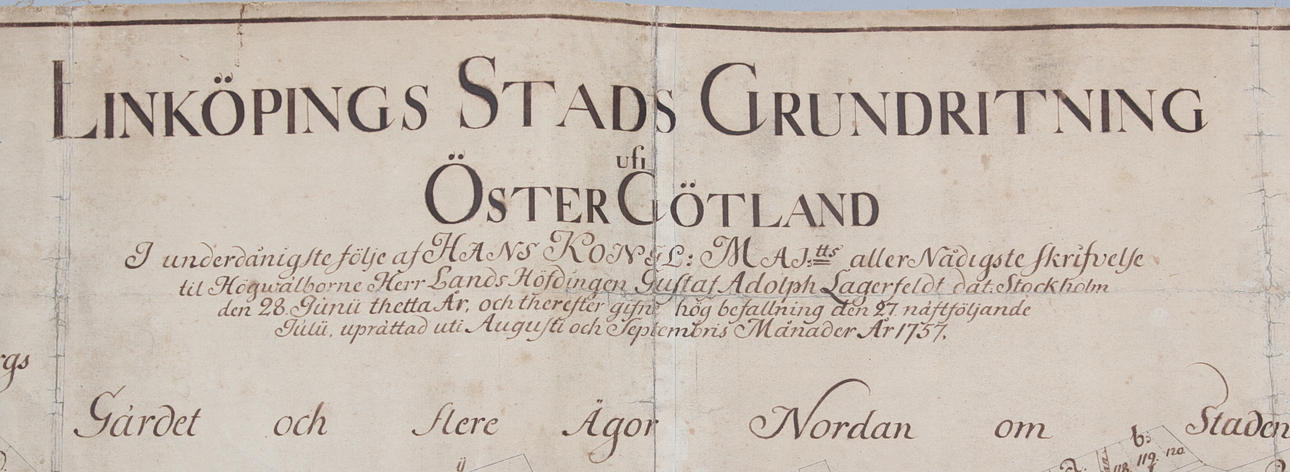 LINKÖPINGS STADS GRUNDRITNING
uti
ÖSTERGÖTLAND
I underdånigste följe af HANS KONGL: MAJ:tts aller Nådigste skrifvelse
til Högwälborne Herr Lands Höfdingen Gustaf Adolph Lagerfeldt dat: Stockholm
den 28 Junii thetta År, och therefter gifne hög befallning den 27 nästföljande
Julii, uprättad uti Augusti och Septembris Månader År 1757.
rgs
Gärdet och flere Ägor Nordan om Staden
b:
118. 119. 120